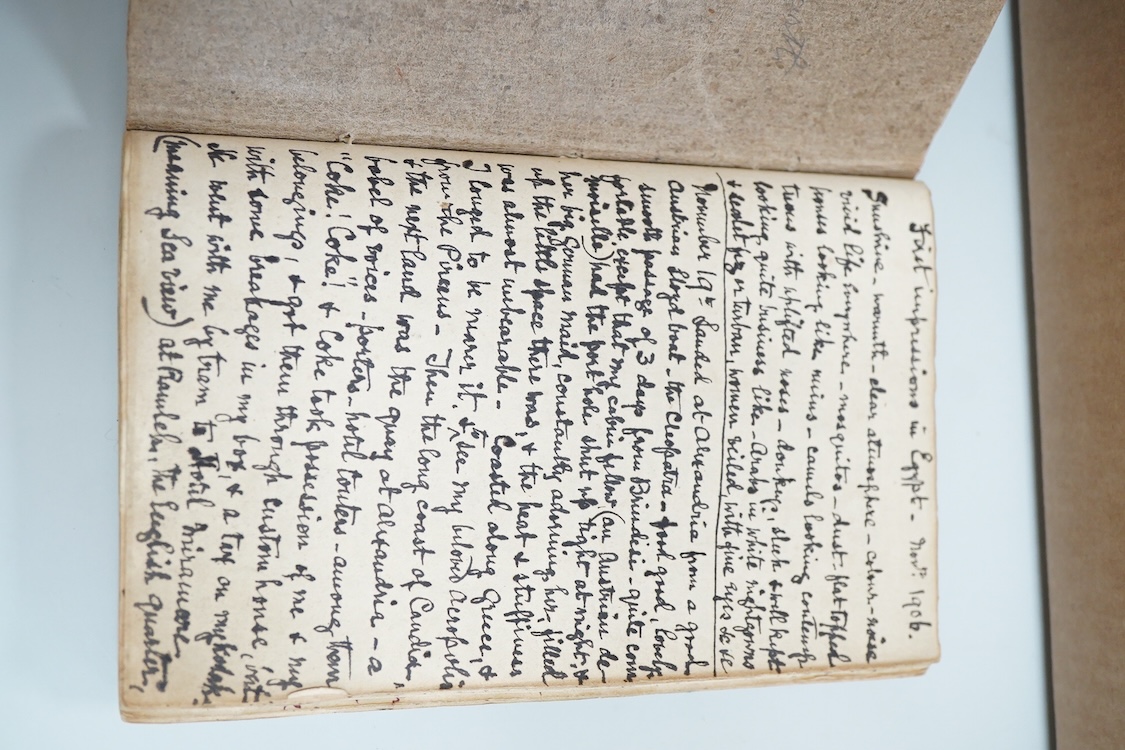 First impressions in Egypt - Nov. 1906.
Sunshine - warmth - clear atmosphere - colour - noise
vivid life everywhere - mosquitos - dust - flat topped
houses looking like ruins - camels looking contemp
tuous with uplifted noses - donkeys, sleek & well kept
looking quite business like - Arabs in white nightgowns
& scarlet fez or turban, women veiled, with fine eyes
November 19th Landed at Alexandria from a good
Austrian Lloyd boat - the Cleopatra - good food, lovely
smooth passage of 3 days from Brindisi - quite com
fortable except that my cabin fellow (an Austrian de-
moiselle) had the port hole shut up tight at night, &
her big German maid, constantly adorning her, filled
up the little space there was, & the heat & stuffiness
was almost unbearable - Coasted along Greece, &
I longed to be nearer it, to see my beloved Acropolis
from the Piraeus - Then the long coast of Candia,
& the next land was the quay at Alexandria - a
babel of voices - porters - hotel touters - among them
"Coke! Coke"! & Coke took possession of me & my
belongings, & got them through custom house, with
with some breakages in my box, & a tax on my kodak.
He went with me by tram to Hotel Miramare
(meaning Sea view) at Ramleh, the English quarter,